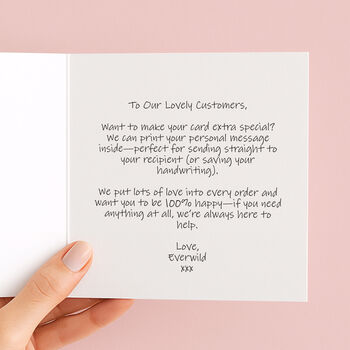 To Our Lovely Customers,
Want to make your card extra special?
We can print your personal message
inside—perfect for sending straight to
your recipient (or saving your
handwriting).
We put lots of love into every order and
want you to be 100% happy—if you need
anything at all, we're always here to
help.
Love,
Everwild
xxx